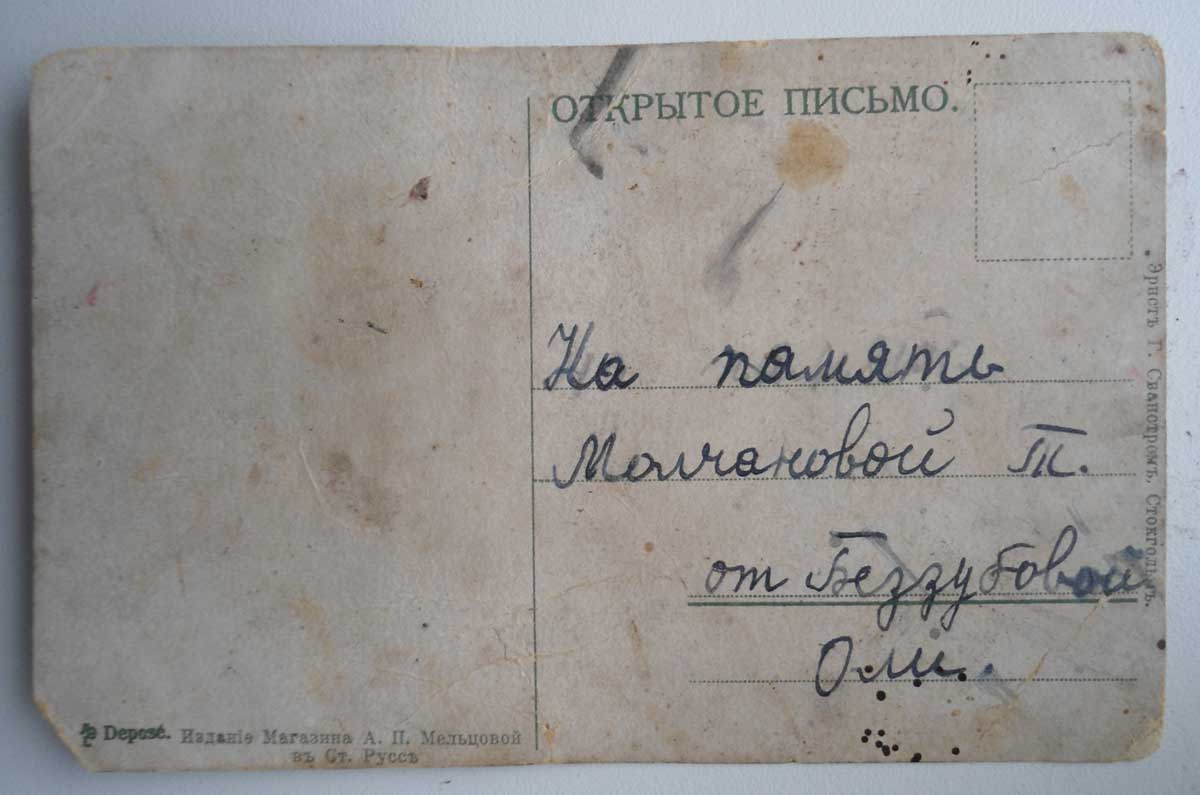 ОТКРЫТОЕ ПИСЬМО.
На память
Молчановой Т.
от Беззубовой
Оли.
Эрнстъ Г. Сванстремъ, Стокгольмъ.
Deposé. Изданіе Магазина А. П. Мельцовой
въ Ст. Руссѣ